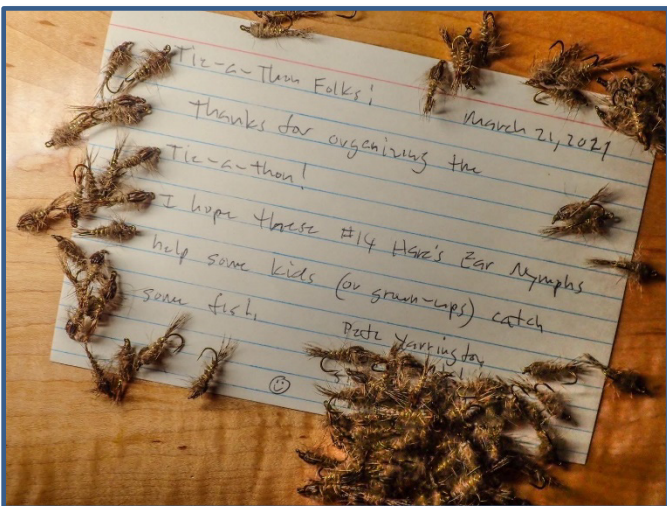 Tie-a-Thon Folks;
March 21, 2021
Thanks for organizing the
Tie-a-thon!
I hope these #14 Hare's Ear Nymphs
help some kids (or grown-ups) catch
some fish.
Pete Yarrington